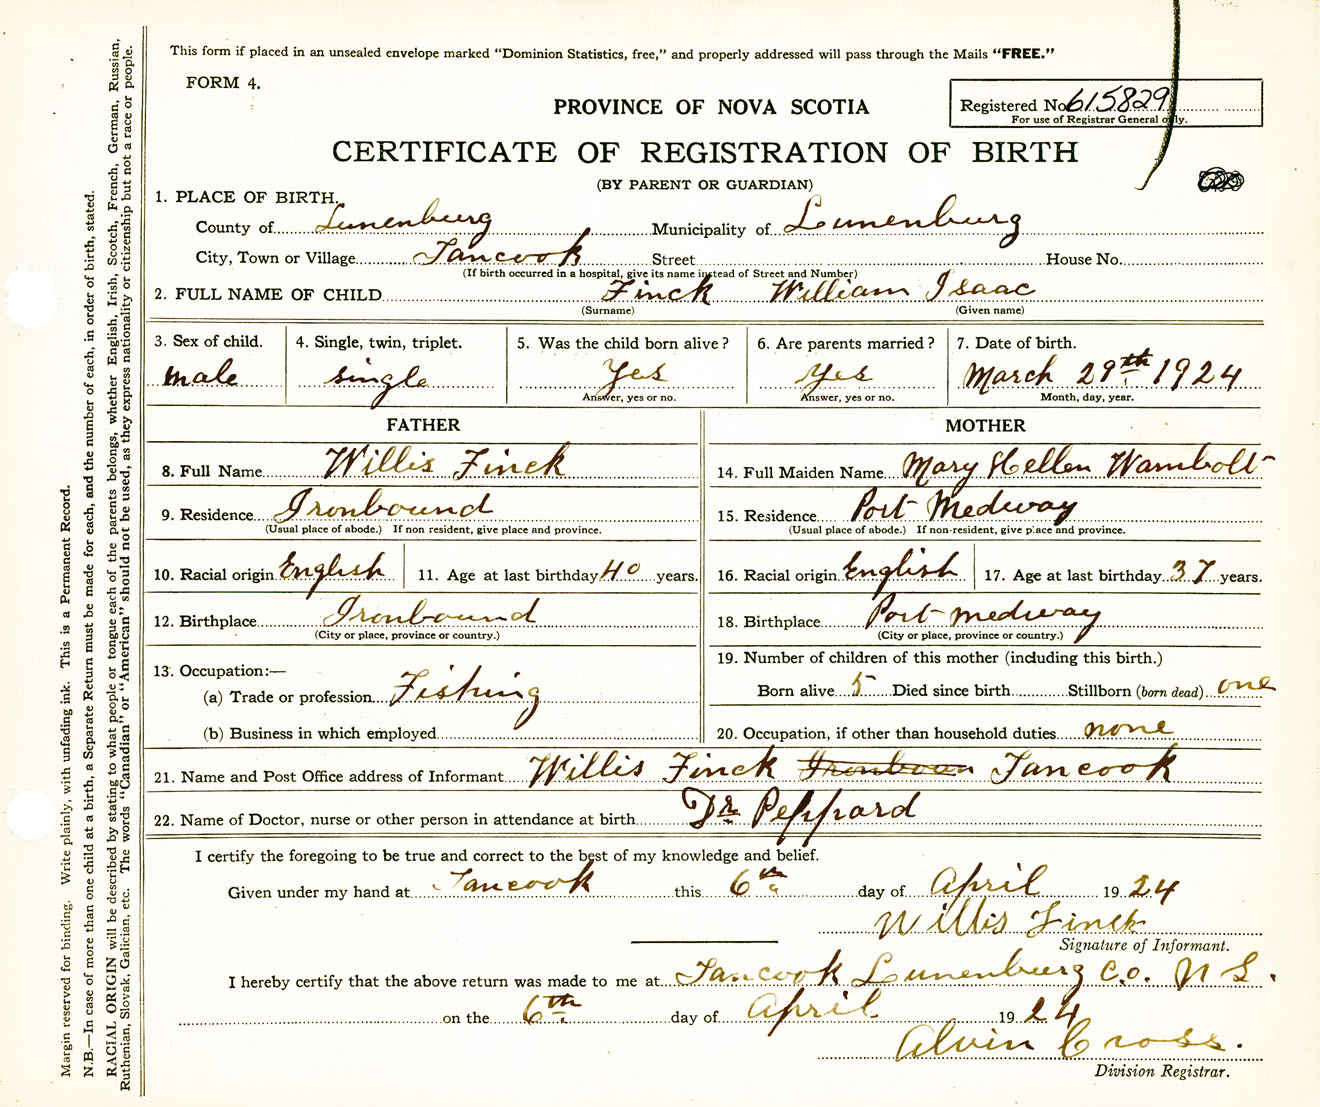 This form if placed in an unsealed envelope marked "Dominion Statistics, free," and properly addressed will pass through the Mails "FREE."
FORM 4.
PROVINCE OF NOVA SCOTIA
Registered No. 615829
For use of Registrar General only.
CERTIFICATE OF REGISTRATION OF BIRTH
(BY PARENT OR GUARDIAN)
1. PLACE OF BIRTH.
County of Lunenburg Municipality of Lunenburg
City, Town or Village Tancook Street House No.
(If birth occurred in a hospital, give its name instead of Street and Number)
2. FULL NAME OF CHILD Finck William Isaac
(Surname) (Given name)
3. Sex of child. 4. Single, twin, triplet. 5. Was the child born alive? 6. Are parents married? 7. Date of birth.
male single Yes Yes March 29th 1924
Answer, yes or no. Answer, yes or no. Month, day, year.
FATHER MOTHER
8. Full Name Willis Finck 14. Full Maiden Name Mary Hellen Wambolt
9. Residence Ironbound 15. Residence Port Medway
(Usual place of abode.) If non resident, give place and province. (Usual place of abode.) If non-resident, give place and province.
10. Racial origin English 11. Age at last birthday 40 years. 16. Racial origin English 17. Age at last birthday 37 years.
12. Birthplace Ironbound 18. Birthplace Port medway
(City or place, province or country.) (City or place, province or country.)
13. Occupation:— 19. Number of children of this mother (including this birth.)
(a) Trade or profession Fishing Born alive 5 Died since birth Stillborn (born dead) one
(b) Business in which employed 20. Occupation, if other than household duties none
21. Name and Post Office address of Informant Willis Finck Tancook
22. Name of Doctor, nurse or other person in attendance at birth Dr Peppard
I certify the foregoing to be true and correct to the best of my knowledge and belief.
Given under my hand at Tancook this 6th day of April 1924
Willis Finck
Signature of Informant.
I hereby certify that the above return was made to me at Tancook Lunenburg Co. N S.
on the 6th day of April 1924
Alvin Cross.
Division Registrar.
Margin reserved for binding. Write plainly, with unfading ink. This is a Permanent Record.
N.B.—In case of more than one child at a birth, a Separate Return must be made for each, and the number of each, in order of birth, stated.
RACIAL ORIGIN will be described by stating to what people or tongue each of the parents belongs, whether English, Irish, Scotch, French, German, Russian,
Ruthenian, Slovak, Galician, etc. The words "Canadian" or "American" should not be used, as they express nationality or citizenship but not a race or people.